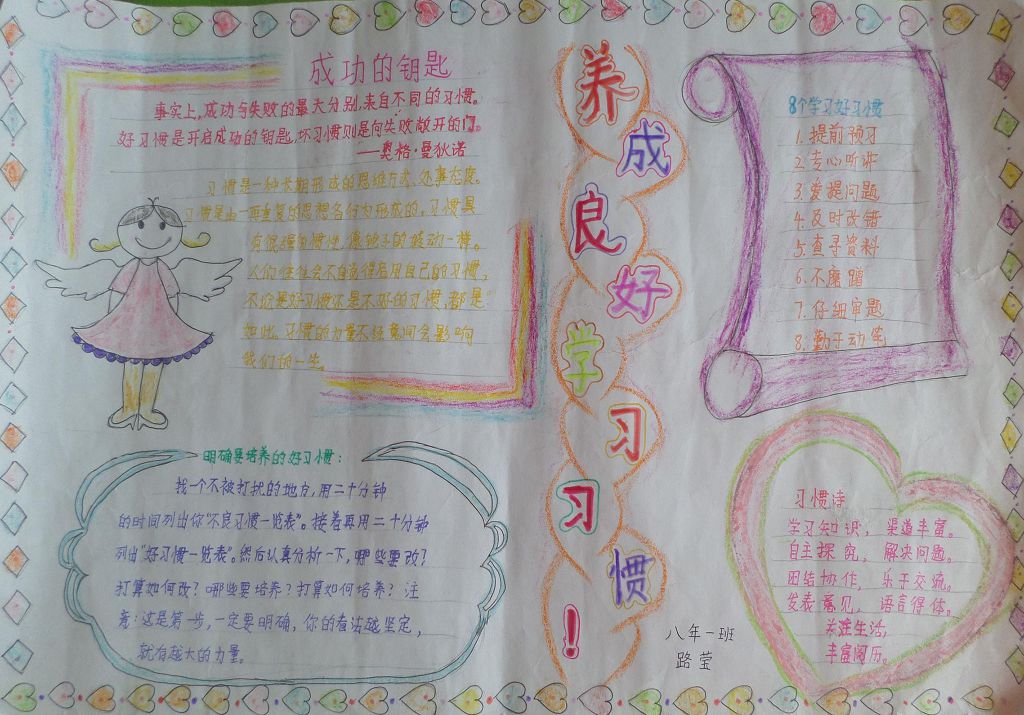 成功的钥匙
事实上,成功与失败的最大分别,来自不同的习惯。
好习惯是开启成功的钥匙,坏习惯则是向失败敞开的门。
——奥格·曼狄诺
习惯是一种长期形成的思维方式、处事态度。
习惯是由一再重复的思想各行为形成的。习惯具
有很强的惯性,像轮子的转动一样。
人们往往会不自觉得启用自己的习惯,
不论是好习惯还是不好的习惯,都是
如此。习惯的力量不经意间会影响
我们的一生。
养成良好学习习惯!
8个学习好习惯
1.提前预习
2.专心听讲
3.爱提问题
4.及时改错
5.查寻资料
6.不磨蹭
7.仔细审题
8.勤于动笔
明确要培养的好习惯:
找一个不被打扰的地方,用二十分钟
的时间列出你“不良习惯一览表”。接着再用二十分钟
列出“好习惯一览表”。然后认真分析一下,哪些要改?
打算如何改?哪些要培养?打算如何培养?注
意:这是第一步,一定要明确,你的看法越坚定,
就有越大的力量。
习惯诗
学习知识,渠道丰富。
自主探究,解决问题。
团结协作,乐于交流。
发表意见,语言得体。
关注生活,
丰富阅历。
八年一班
路莹